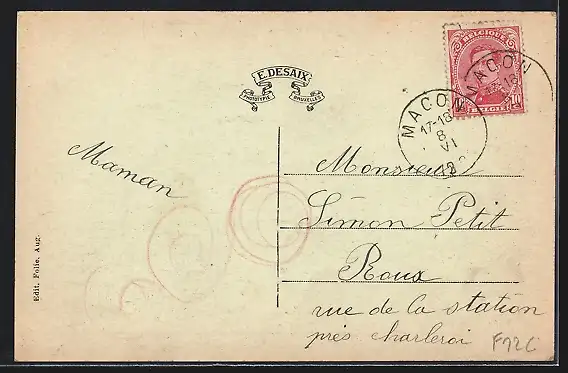 E. DESAIX
PHOTOTYPIE BRUXELLES
BELGIQUE
10 10
BELGIË
MACON
MACON
17-18
8
VI
Maman
Monsieur
Simon Petit
Roux
rue de la station
près charleroi
Edit. Folie, Aug.
F12C